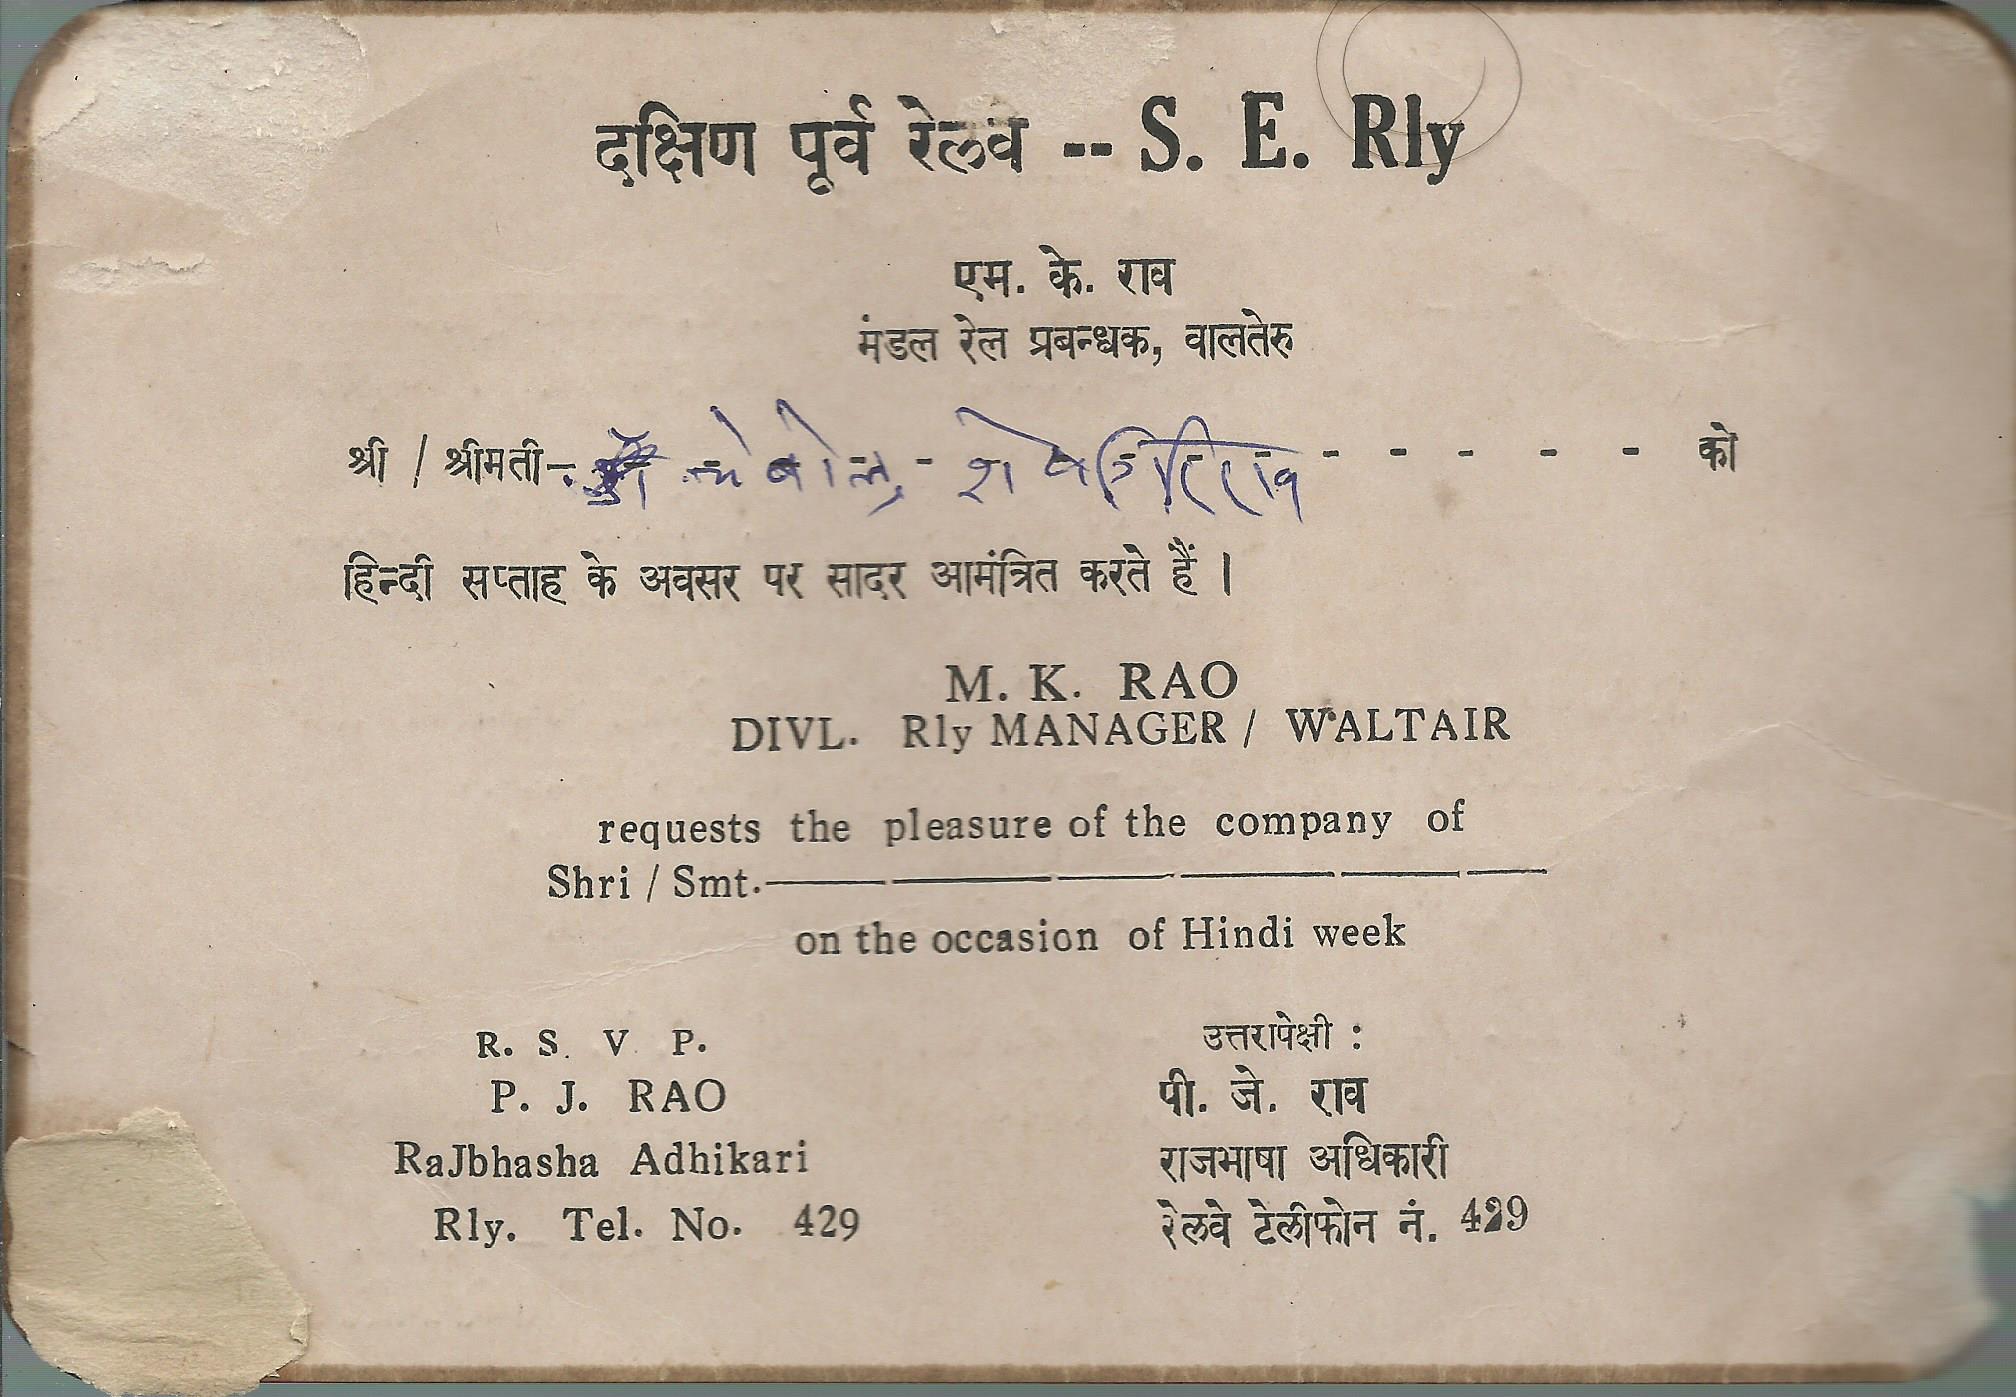 दक्षिण पूर्व रेलवे -- S. E. Rly
एम. के. राव
मंडल रेल प्रबन्धक, वालतेरु
श्री / श्रीमती- चेबोलु शेषगिरिराव को
हिन्दी सप्ताह के अवसर पर सादर आमंत्रित करते हैं ।
M. K. RAO
DIVL. Rly MANAGER / WALTAIR
requests the pleasure of the company of
Shri / Smt.
on the occasion of Hindi week
R. S. V. P.
P. J. RAO
RaJbhasha Adhikari
Rly. Tel. No. 429
उत्तरापेक्षी :
पी. जे. राव
राजभाषा अधिकारी
रेलवे टेलीफोन नं. 429